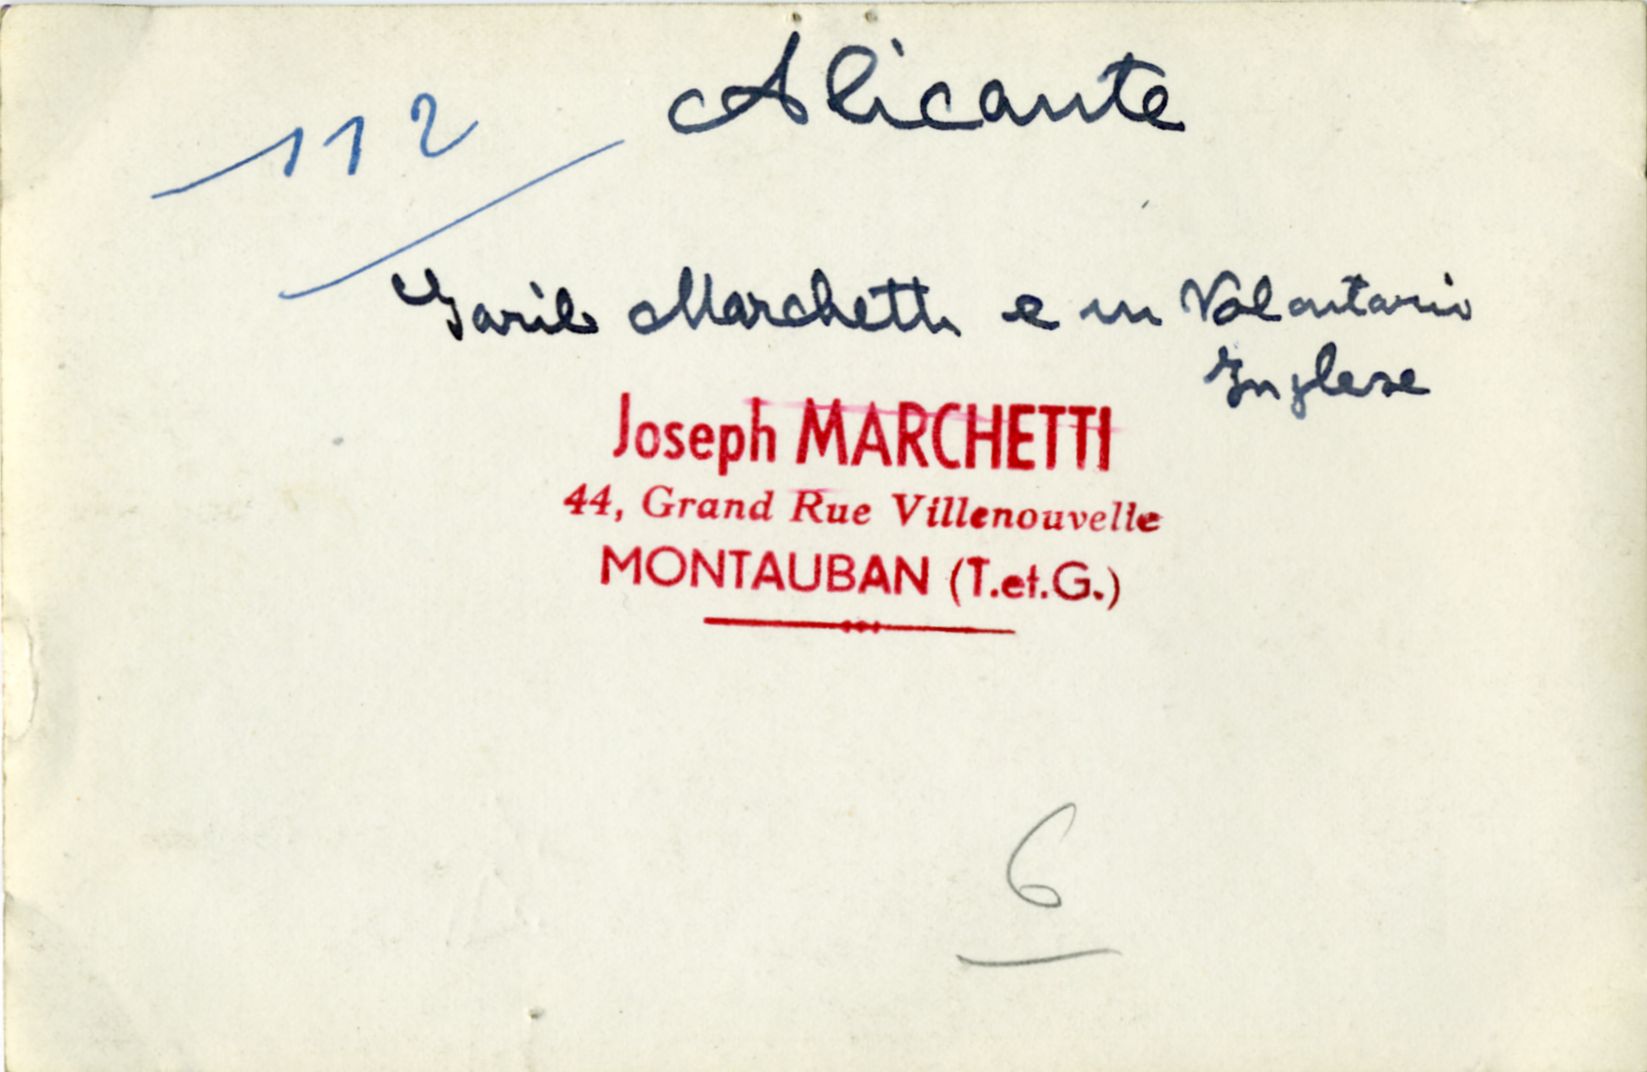 112
Alicante
Marchetti e un Volontario
Inglese
Joseph MARCHETTI
44, Grand Rue Villenouvelle
MONTAUBAN (T.et.G.)
6